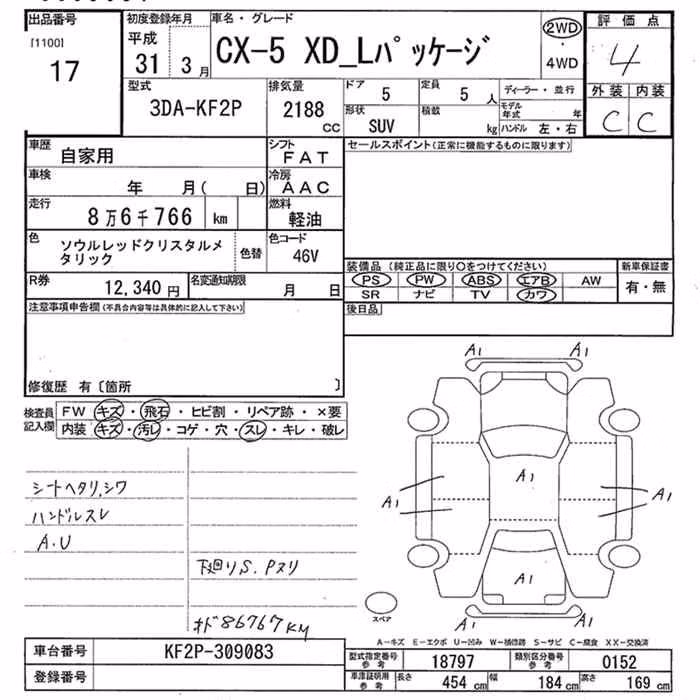 出品番号
[1100]
17
初度登録年月
平成
31 3月
車名・グレード
CX-5 XD_Lパッケージ
2WD
・
4WD
評価点
4
外装 内装
C C
型式
3DA-KF2P
排気量
2188
CC
ドア
5
定員
5 人
形状
SUV
積載
kg
ディーラー・並行
モデル年式 年
ハンドル 左・右
車歴
自家用
シフト
FAT
車検
年 月( 日)
冷房
AAC
走行
8万6千766 km
燃料
軽油
色
ソウルレッドクリスタルメタリック
色替
色コード
46V
R券
12,340円
名変通知期限
月 日
セールスポイント(正常に機能するものに限ります)
装備品 (純正品に限り○をつけてください)
PS PW ABS エアB AW
SR ナビ TV カワ
新車保証書
有・無
後日品
注意事項申告欄(不具合内容等は具体的に記入して下さい)
修復歴 有〔箇所 〕
検査員記入欄
FW キズ・飛石・ヒビ割・リペア跡・×要
内装 キズ・汚レ・コゲ・穴・スレ・キレ・破レ
シートヘタリ,シワ
ハンドルスレ
A.U
下廻りS.Pスリ
オド86767KM
A1 A1
A1
A1 A1
A1
A1 A1
スペア
A-キズ E-エクボ U-凹み W-補修跡 S-サビ C-腐食 XX-交換済
車台番号
KF2P-309083
登録番号
型式指定番号参考
18797
類別区分番号参考
0152
車庫証明用参考
長さ 454 cm
幅 184 cm
高さ 169 cm